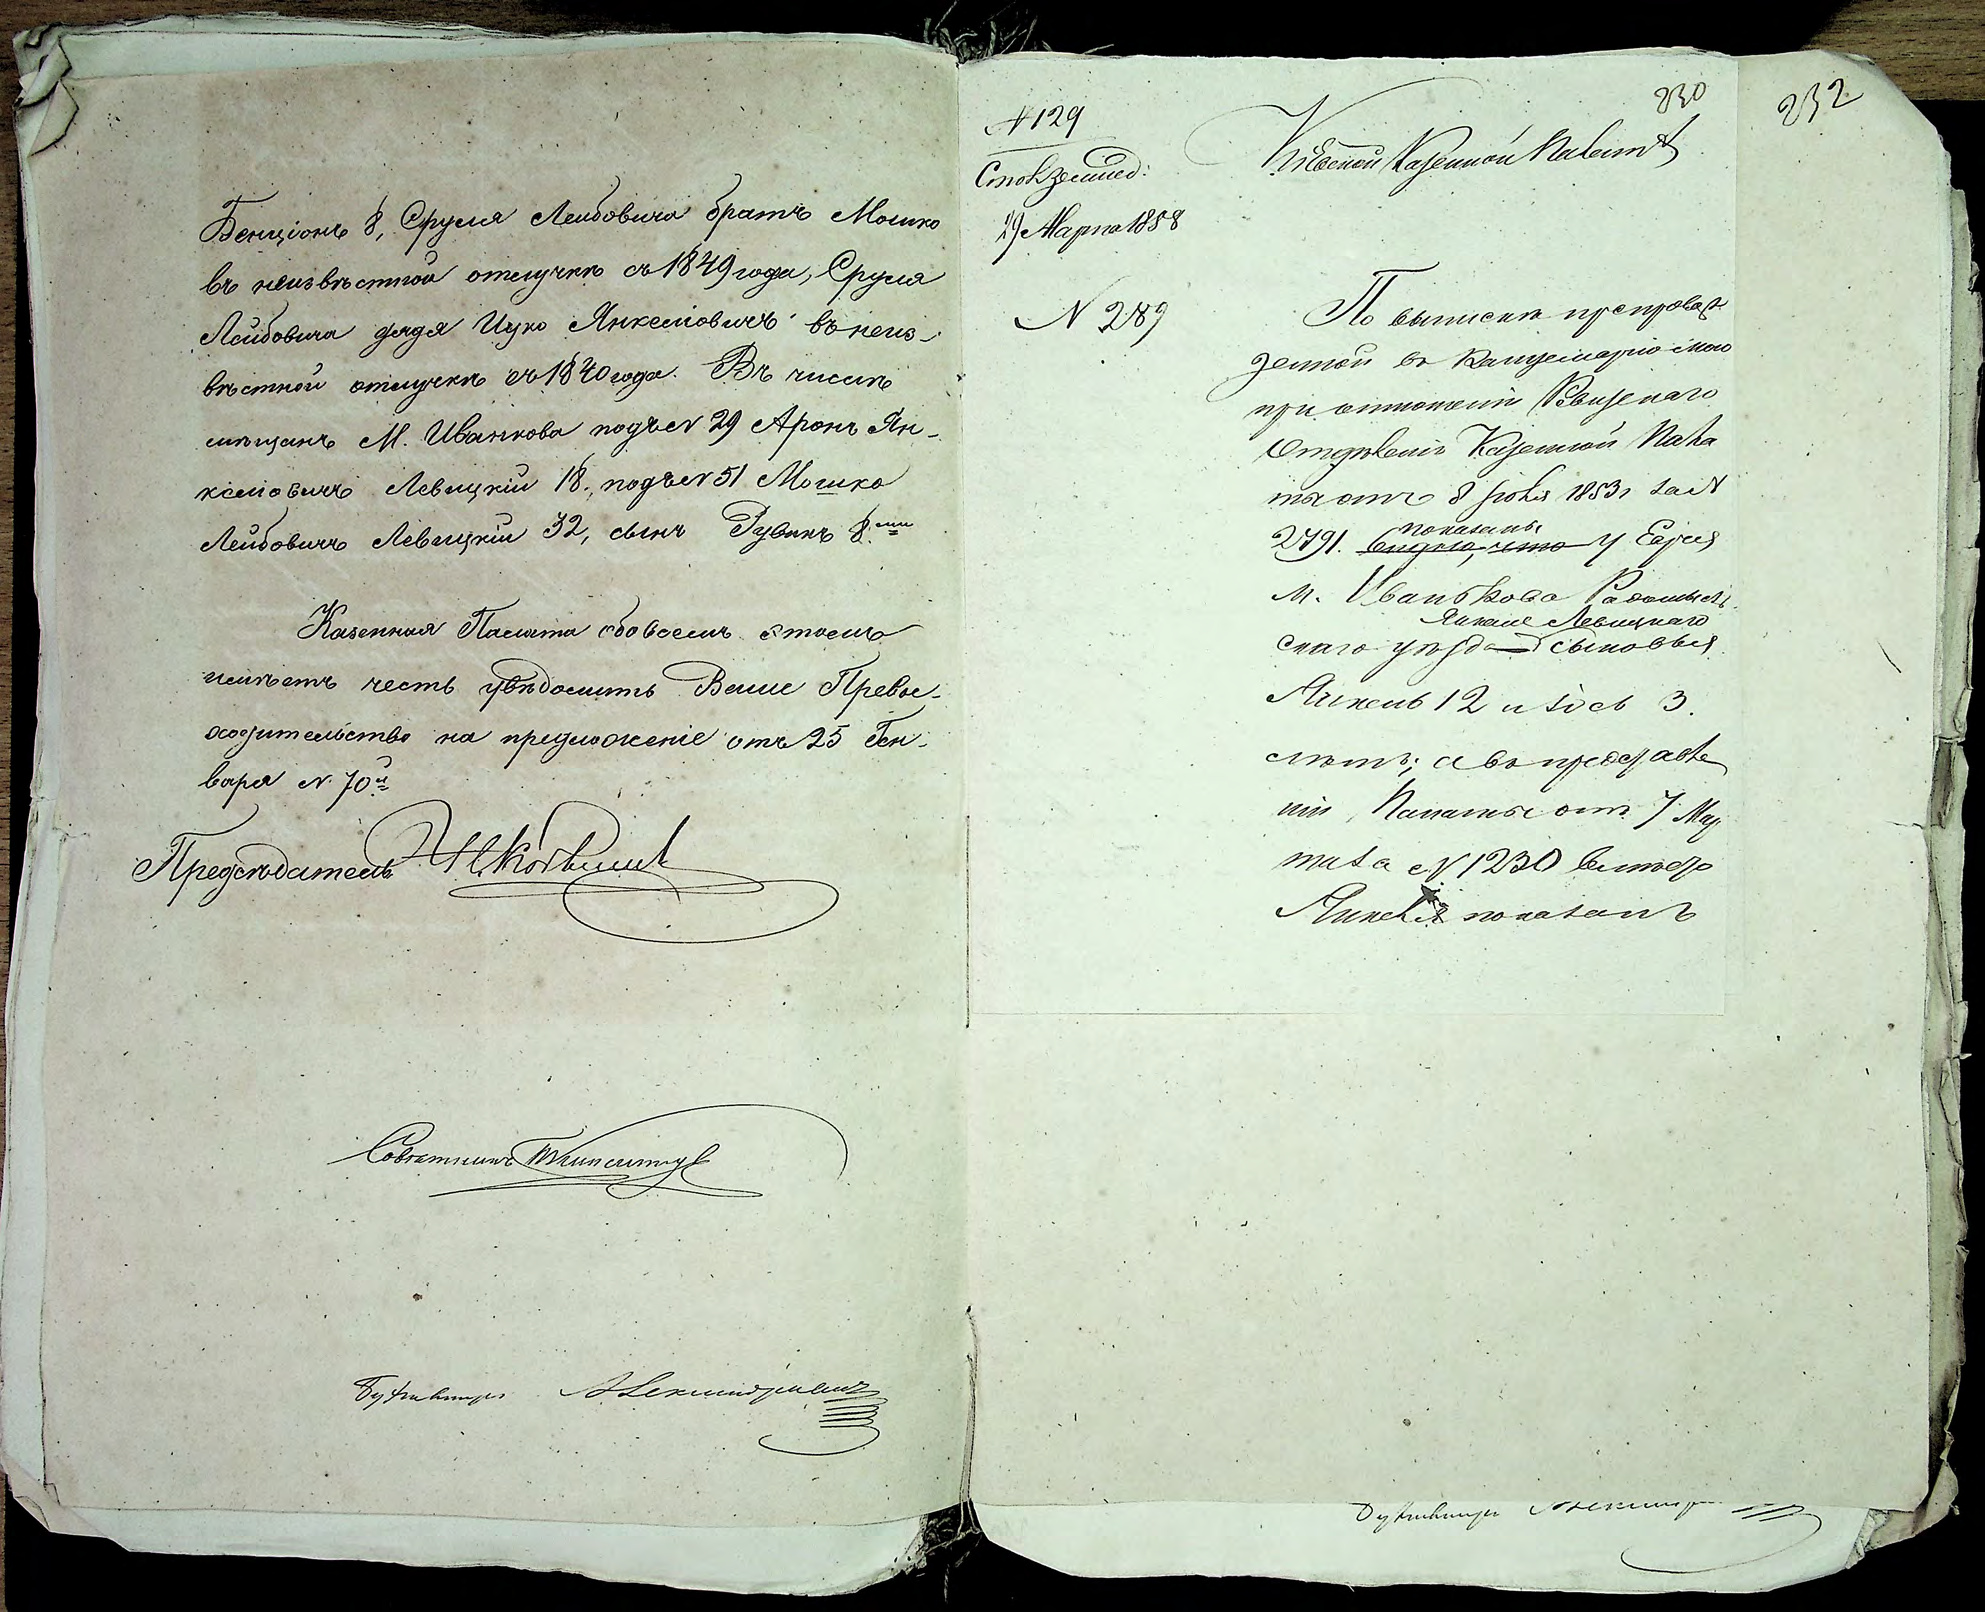 Бенціонъ 8, Сруля Лейбовича братъ Мошко
въ неизвѣстной отлучкѣ съ 1849 года, Сруля
Лейбовича дядя Ицко Янкелiовичъ въ неиз-
вѣстной отлучкѣ съ 1840 года. Въ числѣ
мѣщанъ М. Иванкова подъ N 29 Аронъ Ян-
келіовичъ Левицкій 18, подъ N 51 Мошко
Лейбовичъ Левицкій 32, сынъ Рувинъ 8.ми
Казенная Палата обо всемъ этомъ
имѣетъ честь увѣдомить Ваше Превос-
ходительство на предложеніе отъ 25 Ген-
варя N 70й
Предсѣдатель
Совѣтникъ
Бухгалтеръ Александровичъ
230
232
N 129
29 Марта 1858
N 289
Кіевской Казенной Палатѣ
По выпискѣ препровож
денной въ Канцелярію мою
при отношеніи Ревизскаго
Отдѣленія Казенной Пала
ты отъ 8 Іюля 1853 г. за N
показаны
2791. видно, что у Еврея
м. Иванькова Радомысль
Янкеля Левицкаго
скаго уѣзда сыновья
Янкель 12 и 3.
лѣтъ; а въ представле
ніи Палаты от 7 Мар
та за N 1230 вмѣсто
Янкеля показанъ
Бухгалтеръ